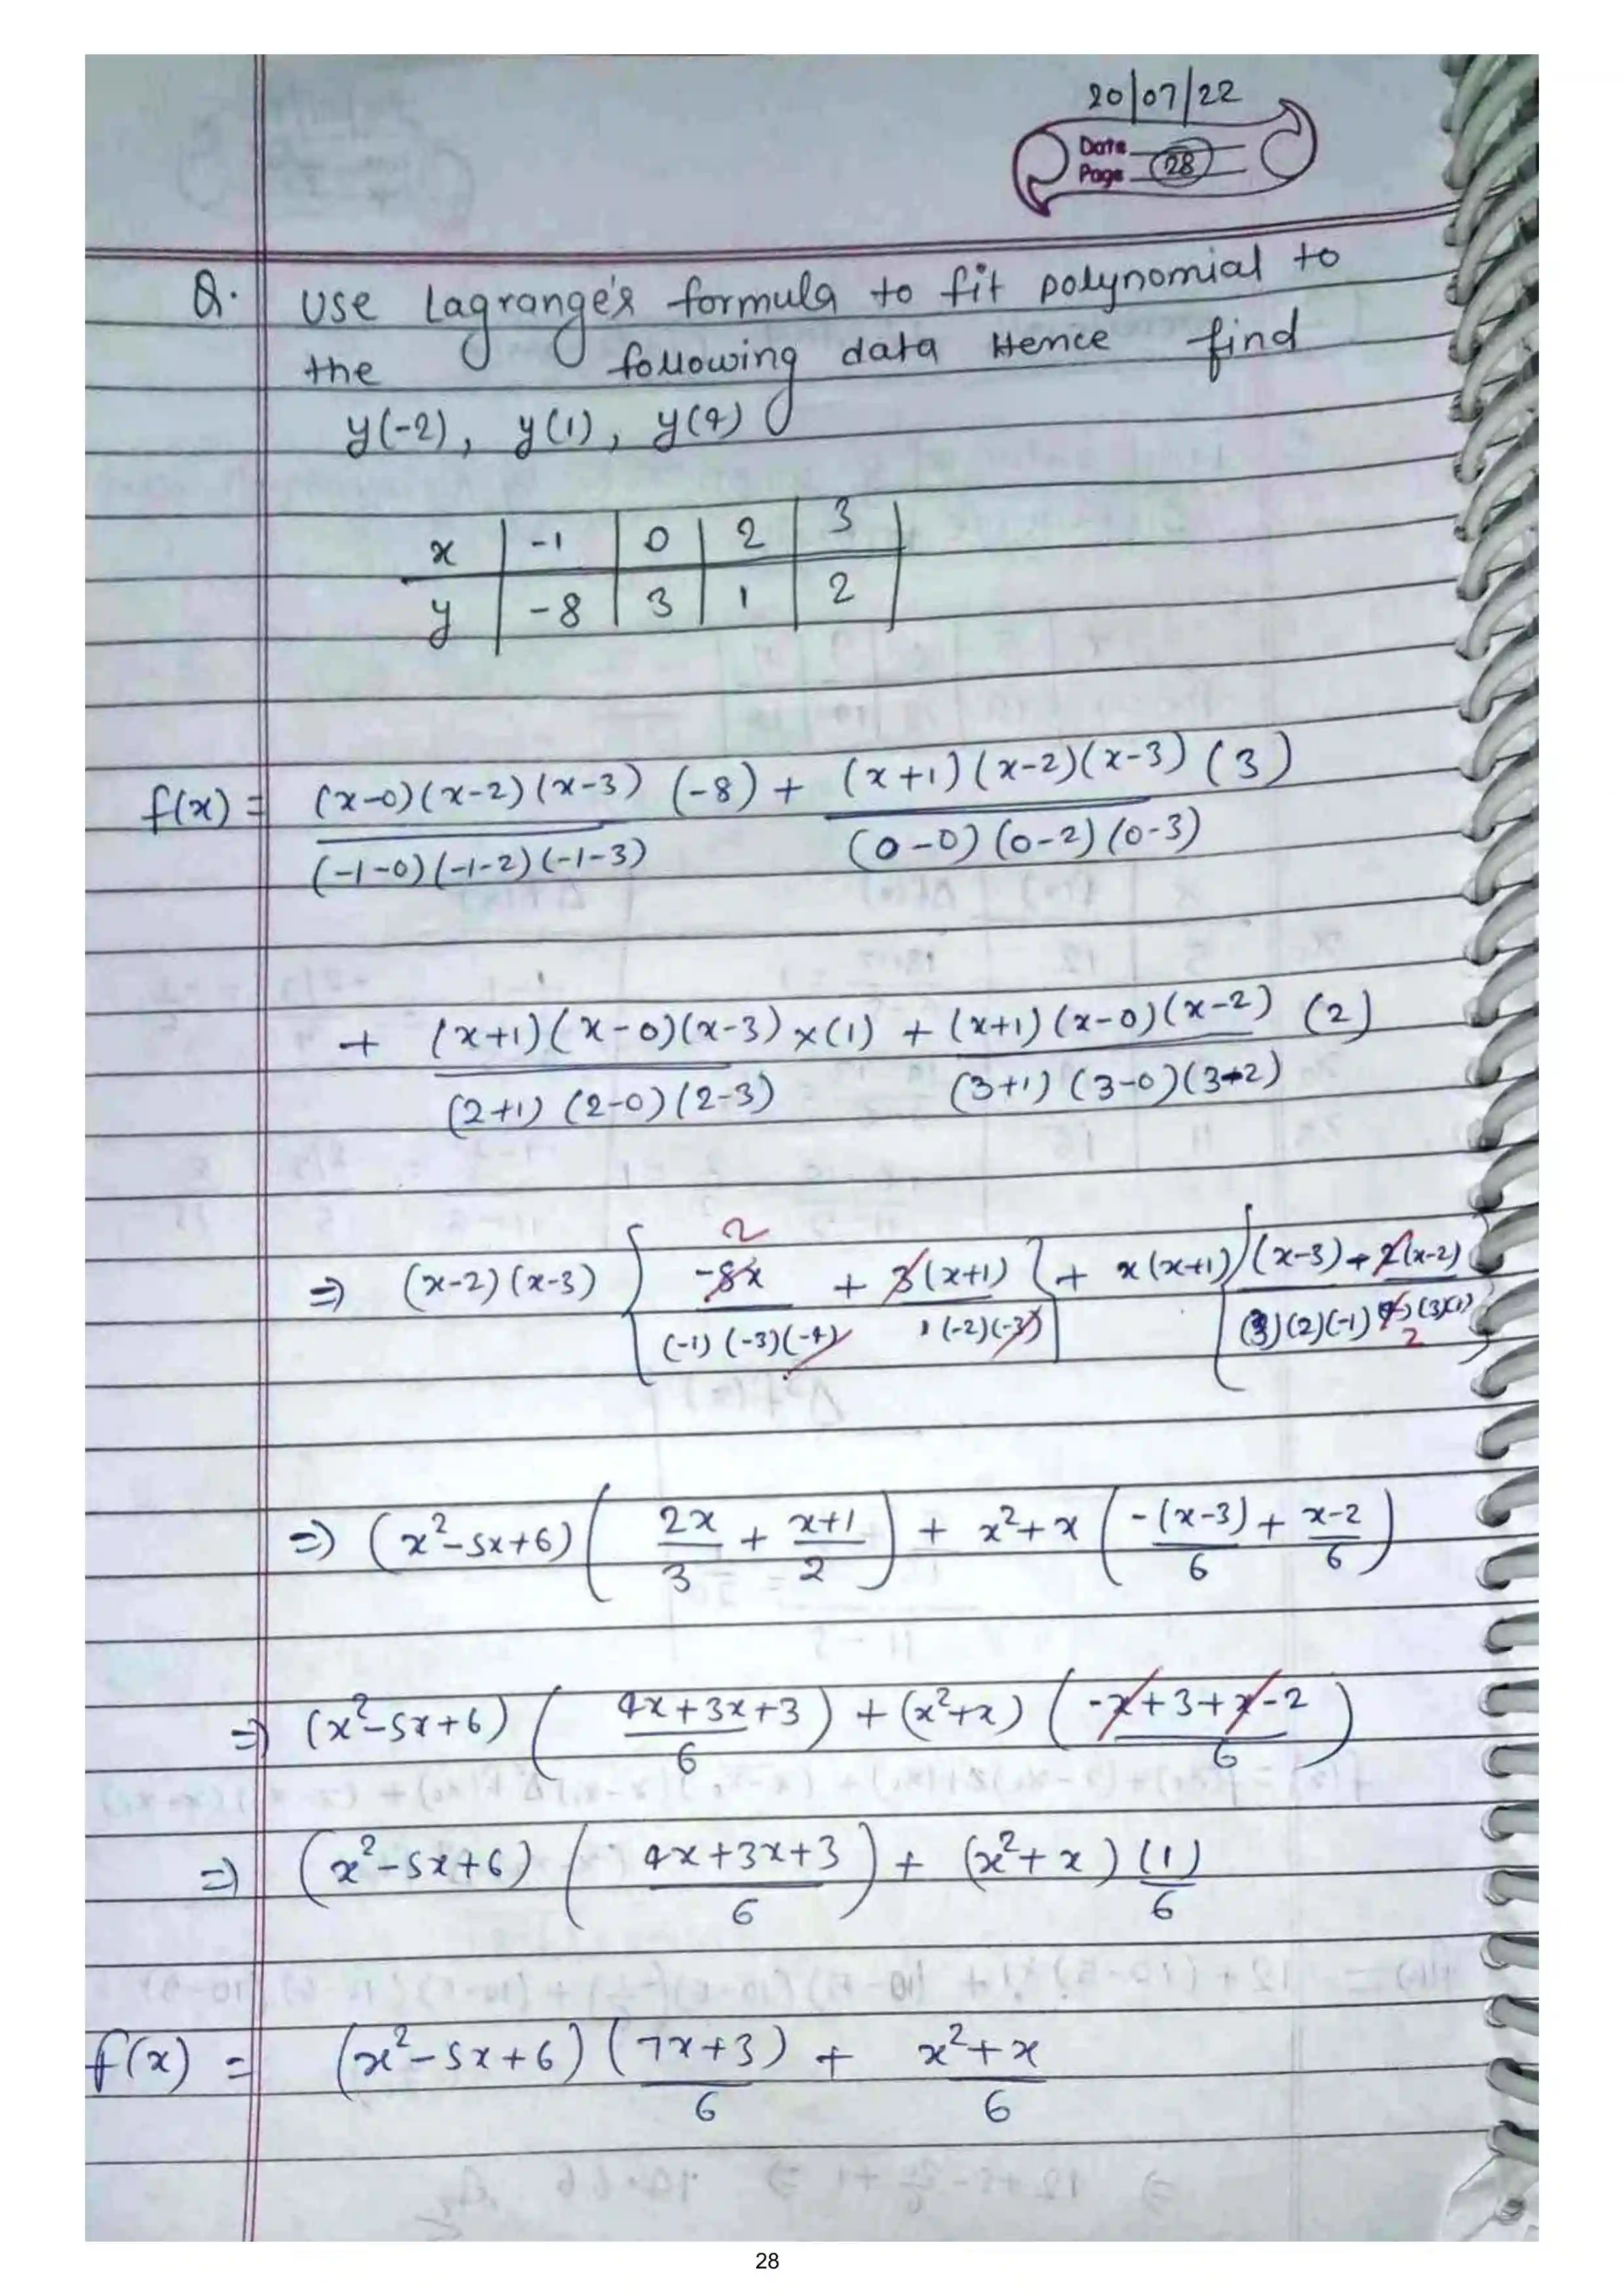 20/07/22
Date
Page 28
Q. Use Lagrange's formula to fit polynomial to
the following data Hence find
y(-2), y(1), y(4)
x | -1 | 0 | 2 | 3
y | -8 | 3 | 1 | 2
f(x) = (x-0)(x-2)(x-3) (-8) + (x+1)(x-2)(x-3) (3)
(-1-0)(-1-2)(-1-3) (0-0)(0-2)(0-3)
+ (x+1)(x-0)(x-3) x(1) + (x+1)(x-0)(x-2) (2)
(2+1)(2-0)(2-3) (3+1)(3-0)(3-2)
2
⇒ (x-2)(x-3) { -8x + 3(x+1) } + x(x+1) { (x-3) + 2(x-2) }
(-1)(-3)(-4) (-2)(-3) (3)(2)(-1) (4)(3)(1)
2
⇒ (x²-5x+6) ( 2x/3 + x+1/2 ) + x²+x ( -(x-3)/6 + x-2/6 )
⇒ (x²-5x+6) ( 4x+3x+3/6 ) + (x²+x) ( -x+3+x-2/6 )
⇒ (x²-5x+6) ( 4x+3x+3/6 ) + (x²+x) (1)/6
f(x) = (x²-5x+6) (7x+3)/6 + x²+x/6
28